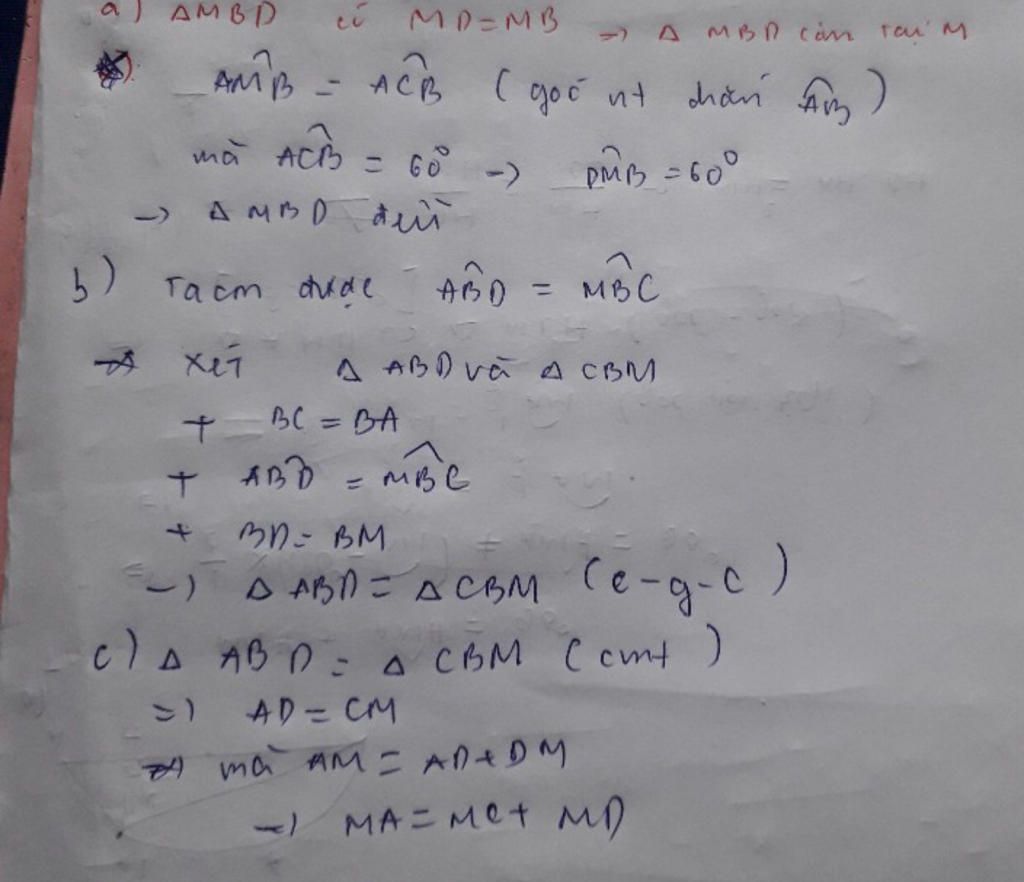 a) ΔMBD có MD=MB → Δ MBD cân tại M
AM̂B = AĈB (góc nt chắn A͡B)
mà AĈB = 60° → DM̂B = 60°
→ Δ MBD đều
b) Ta cm được AB̂D = MB̂C
Xét Δ ABD và Δ CBM
+ BC = BA
+ AB̂D = MB̂C
+ BD = BM
→ Δ ABD = Δ CBM (c-g-c)
c) Δ ABD = Δ CBM (cmt)
=) AD = CM
mà AM = AD + DM
→ MA = MC + MD